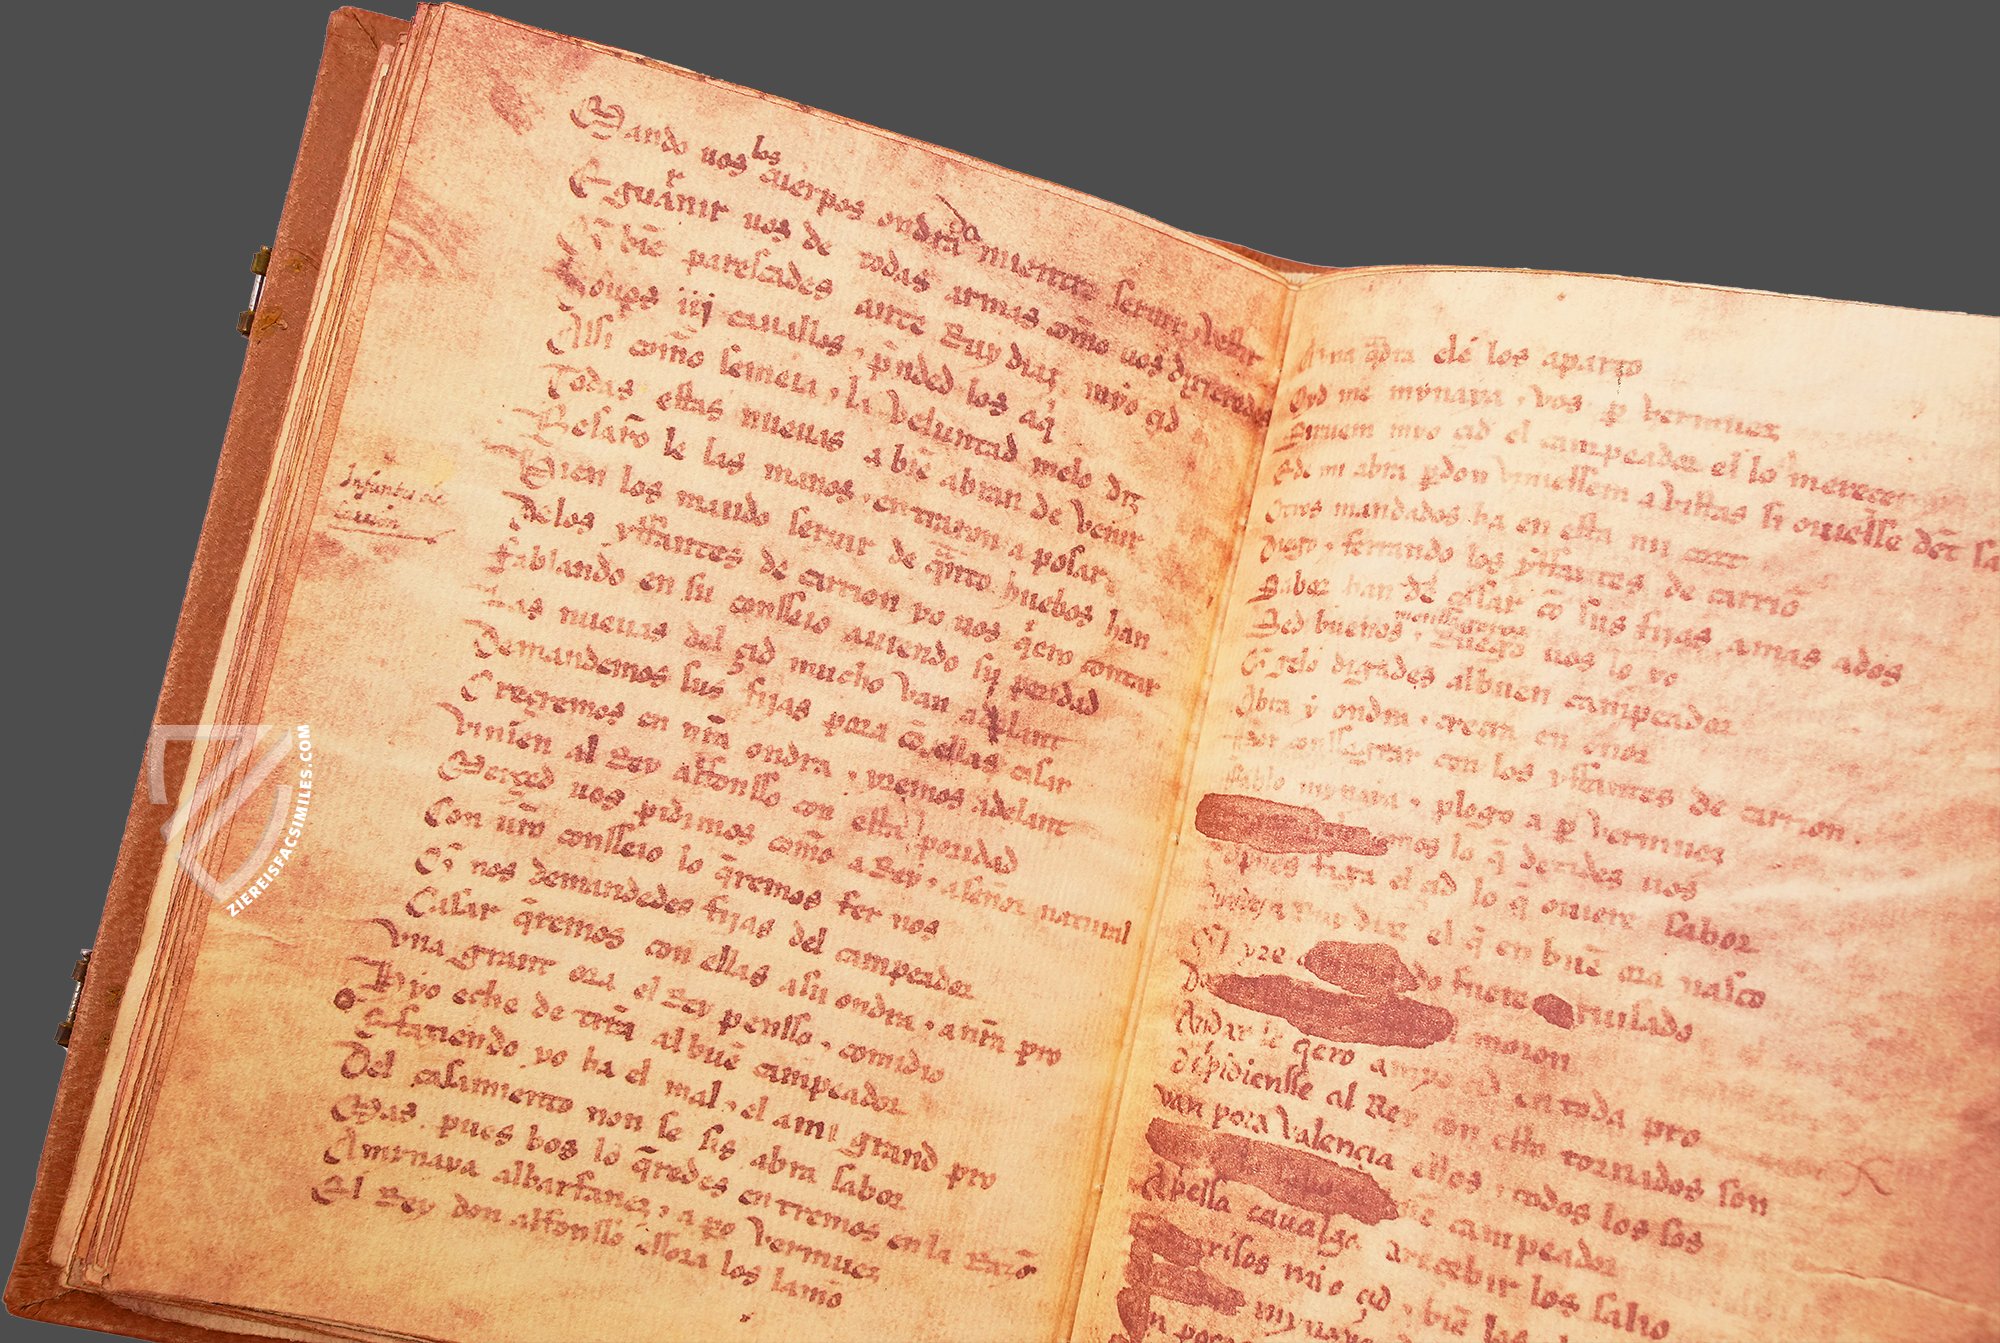 Mando uos los cuerpos ondrada mientre seruir & vestir
E guarnir uos de todas armas com̃o uos dixieredes
Q̃ biẽ parescades ante Ruy diaz myo çid
Douos iij cauallos & p̃nded los aq̃
Assi com̃o semeia & la veluntad melo diz
Todas estas nueuas a biẽ abran de venir
Besarõ le las manos & entraron a posar
Bien los mando seruir de q̃nto huebos han
Delos yffantes de carrion yo uos q̃ero contar
fablando en su conseio auiendo su poridad
Las nueuas del çid mucho van adelant
Demandemos sus fijas pora cõ ellas casar
Creçremos en nr̃a ondra & yremos adelant
Vinien al Rey alfonsso con esta poridad
Merçed uos pidimos com̃o a Rey & a señor natural
Con ur̃o conseio lo q̃remos fer nos
Q̃ nos demandedes fijas del campeador
Casar q̃remos con ellas a su ondra & a nr̃a pro
Vna grant ora el Rey pensso & comidio
Hyo eche de tr̃ra al buẽ campeador
E faziendo yo ha el mal & el a mi grand pro
Del casamiento non se sis abra sabor
Mas pues bos lo q̃redes entremos en la Razõ
A mynaya albarfanez & a po vermuez
El Rey don alfonsso essora los lamo
Infantes de
carrión
A una q̃dra ele los aparto
Oyd me mynaya & vos p̱ vermuez
Siruem myo çid el campeador el lo mereçe
E de mi abra p̱don viniessem a vistas si ouiesse dẽt sa
Otros mandados ha en esta mi cort
Diego & ferrando los yffantes de carriõ
Sabor han de casar cõ sus fijas amas ados
Sed buenos menssageros & Ruego uos lo yo
Q̃ gelo digades al buen campeador
Abra y ondra & creçra en onor
Por conssagrar con los yffantes de carrion
fablo mynaya & plogo a p̱ vermuez
emos lo q̃ dezides uos
Despues faga el çid lo q̃ ouiere sabor
Dezid a Ruy diaz el q̃ en buẽ ora nasco
Q̃l yre do fuere aguisado
moion
Andar le q̃ero a myo çid en toda pro
Espidiensse al Rey con esto tornados son
Van pora Valençia ellos & todos los sos
campeador
Apriessa caualga a reçebir los salio
Sonrrisos mio çid & biẽ los